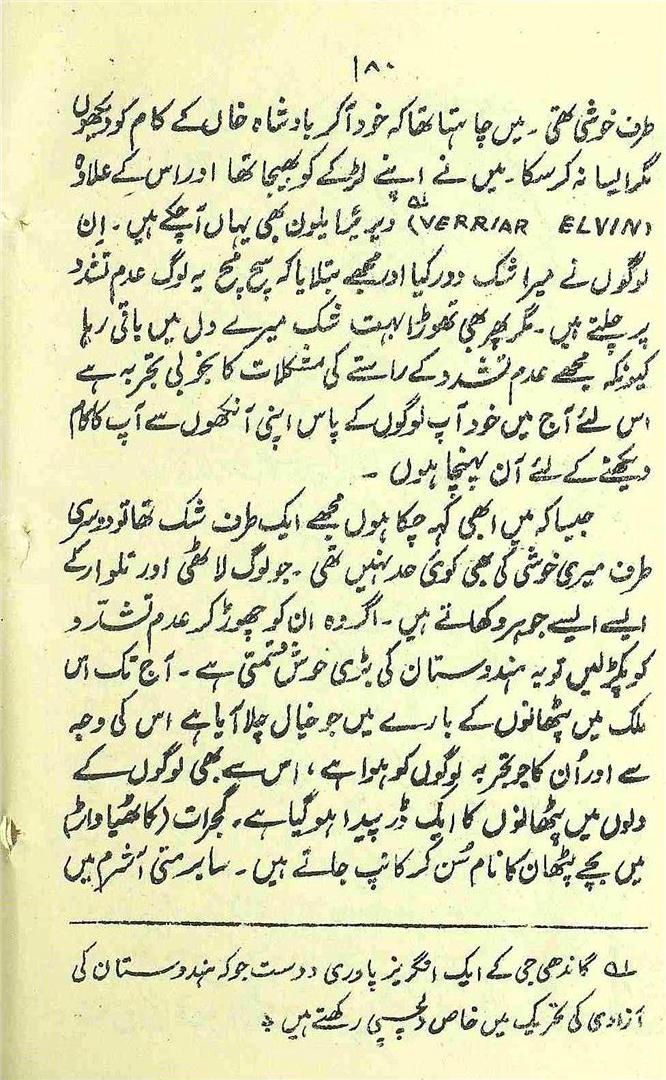 ۱۸۰
طرف خوشی تھی ۔ میں چاہتا تھا کہ خود آکر بادشاہ خاں کے کام کو دیکھوں
مگر ایسا نہ کر سکا ۔ میں نے اپنے لڑکے کو بھیجا تھا اور اس کے علاوہ
(VERRIAR ELVIN) ویریئر ایلون بھی یہاں آچکے ہیں ۔ اِن
لوگوں نے میرا شک دور کیا اور مجھے بتلایا کہ سچ مچ یہ لوگ عدم تشدد
پر چلتے ہیں ۔ مگر پھر بھی تھوڑا بہت شک میرے دل میں باقی رہا
کیونکہ مجھے عدم تشدد کے راستے کی مشکلات کا بخوبی تجربہ ہے
اس لئے آج میں خود آپ لوگوں کے پاس اپنی آنکھوں سے آپ کا کام
دیکھنے کے لئے آن پہنچا ہوں ۔
جیسا کہ میں ابھی کہہ چکا ہوں مجھے ایک طرف شک تھا تو دوسری
طرف میری خوشی کی بھی کوئی حد نہیں تھی ۔ جو لوگ لاٹھی اور تلوار کے
ایسے ایسے جوہر دکھاتے ہیں ۔ اگر وہ ان کو چھوڑ کر عدم تشدّد
کو پکڑ لیں تو یہ ہندوستان کی بڑی خوش قسمتی ہے ۔ آج تک اس
ملک میں پٹھانوں کے بارے میں جو خیال چلا آیا ہے اس کی وجہ
سے اور اُن کا جو تجربہ لوگوں کو ہوا ہے ، اس سے بھی لوگوں کے
دلوں میں پٹھانوں کا ایک ڈر پیدا ہو گیا ہے ۔ گجرات (کاٹھیاواڑ)
میں بچے پٹھان کا نام سُن کر کانپ جاتے ہیں ۔ سابرمتی آشرم میں
۱؎ گاندھی جی کے ایک انگریز پادری دوست جو کہ ہندوستان کی
آزادی کی تحریک میں خاص دلچسپی رکھتے ہیں ؞